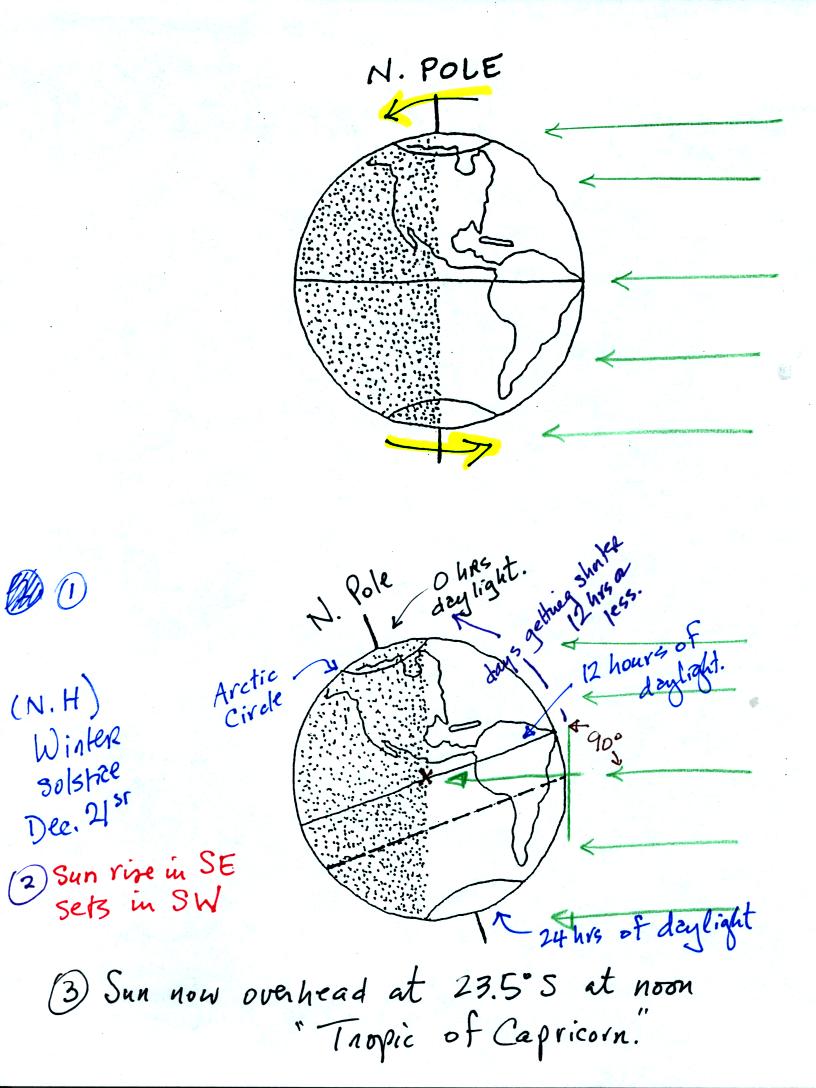 N. POLE
①
N. Pole
0 hrs
daylight.
days getting shorter
12 hrs or
less.
12 hours of
daylight.
Arctic
Circle
90°
(N.H)
Winter
solstice
Dec. 21st
② Sun rise in SE
sets in SW
24 hrs of daylight
③ Sun now overhead at 23.5° S at noon
"Tropic of Capricorn."